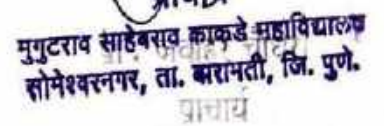 मुगुटराव साहेबराव काकडे महाविद्यालय
सोमेश्वरनगर, ता. बारामती, जि. पुणे.
प्राचार्य